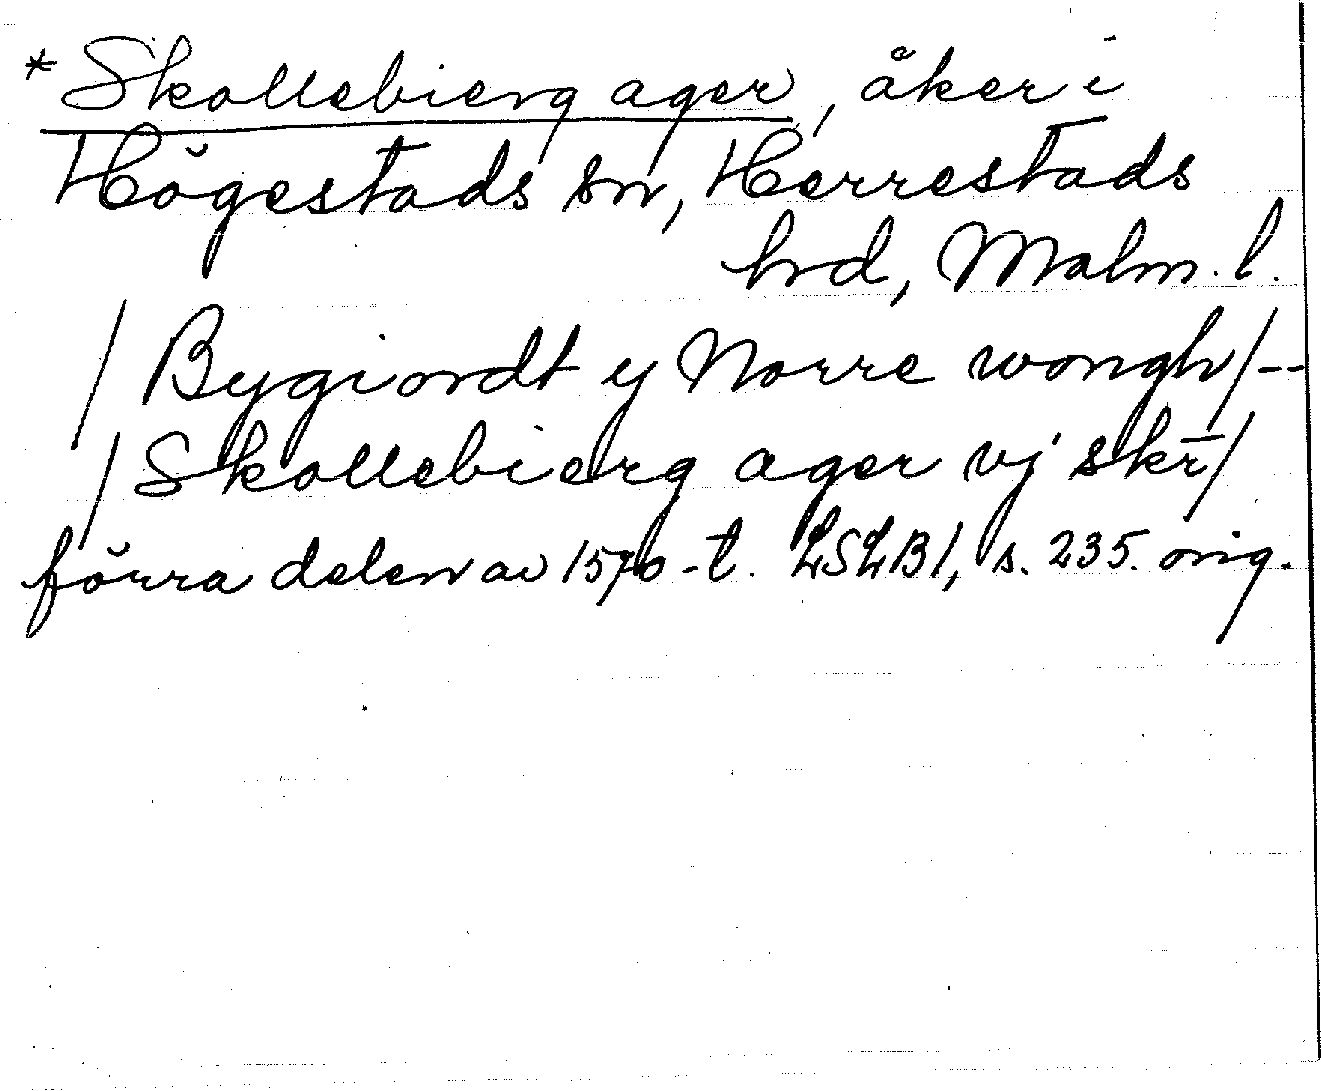 *Skollebierg ager, åker i
Högestads sn, Herrestads
hrd, Malm. l.
/ Bygiordt y Norre wongh/--
/ Skollebierg ager vj skr̄/
förra delen av 1570-t. LSLB1, s. 235. orig.